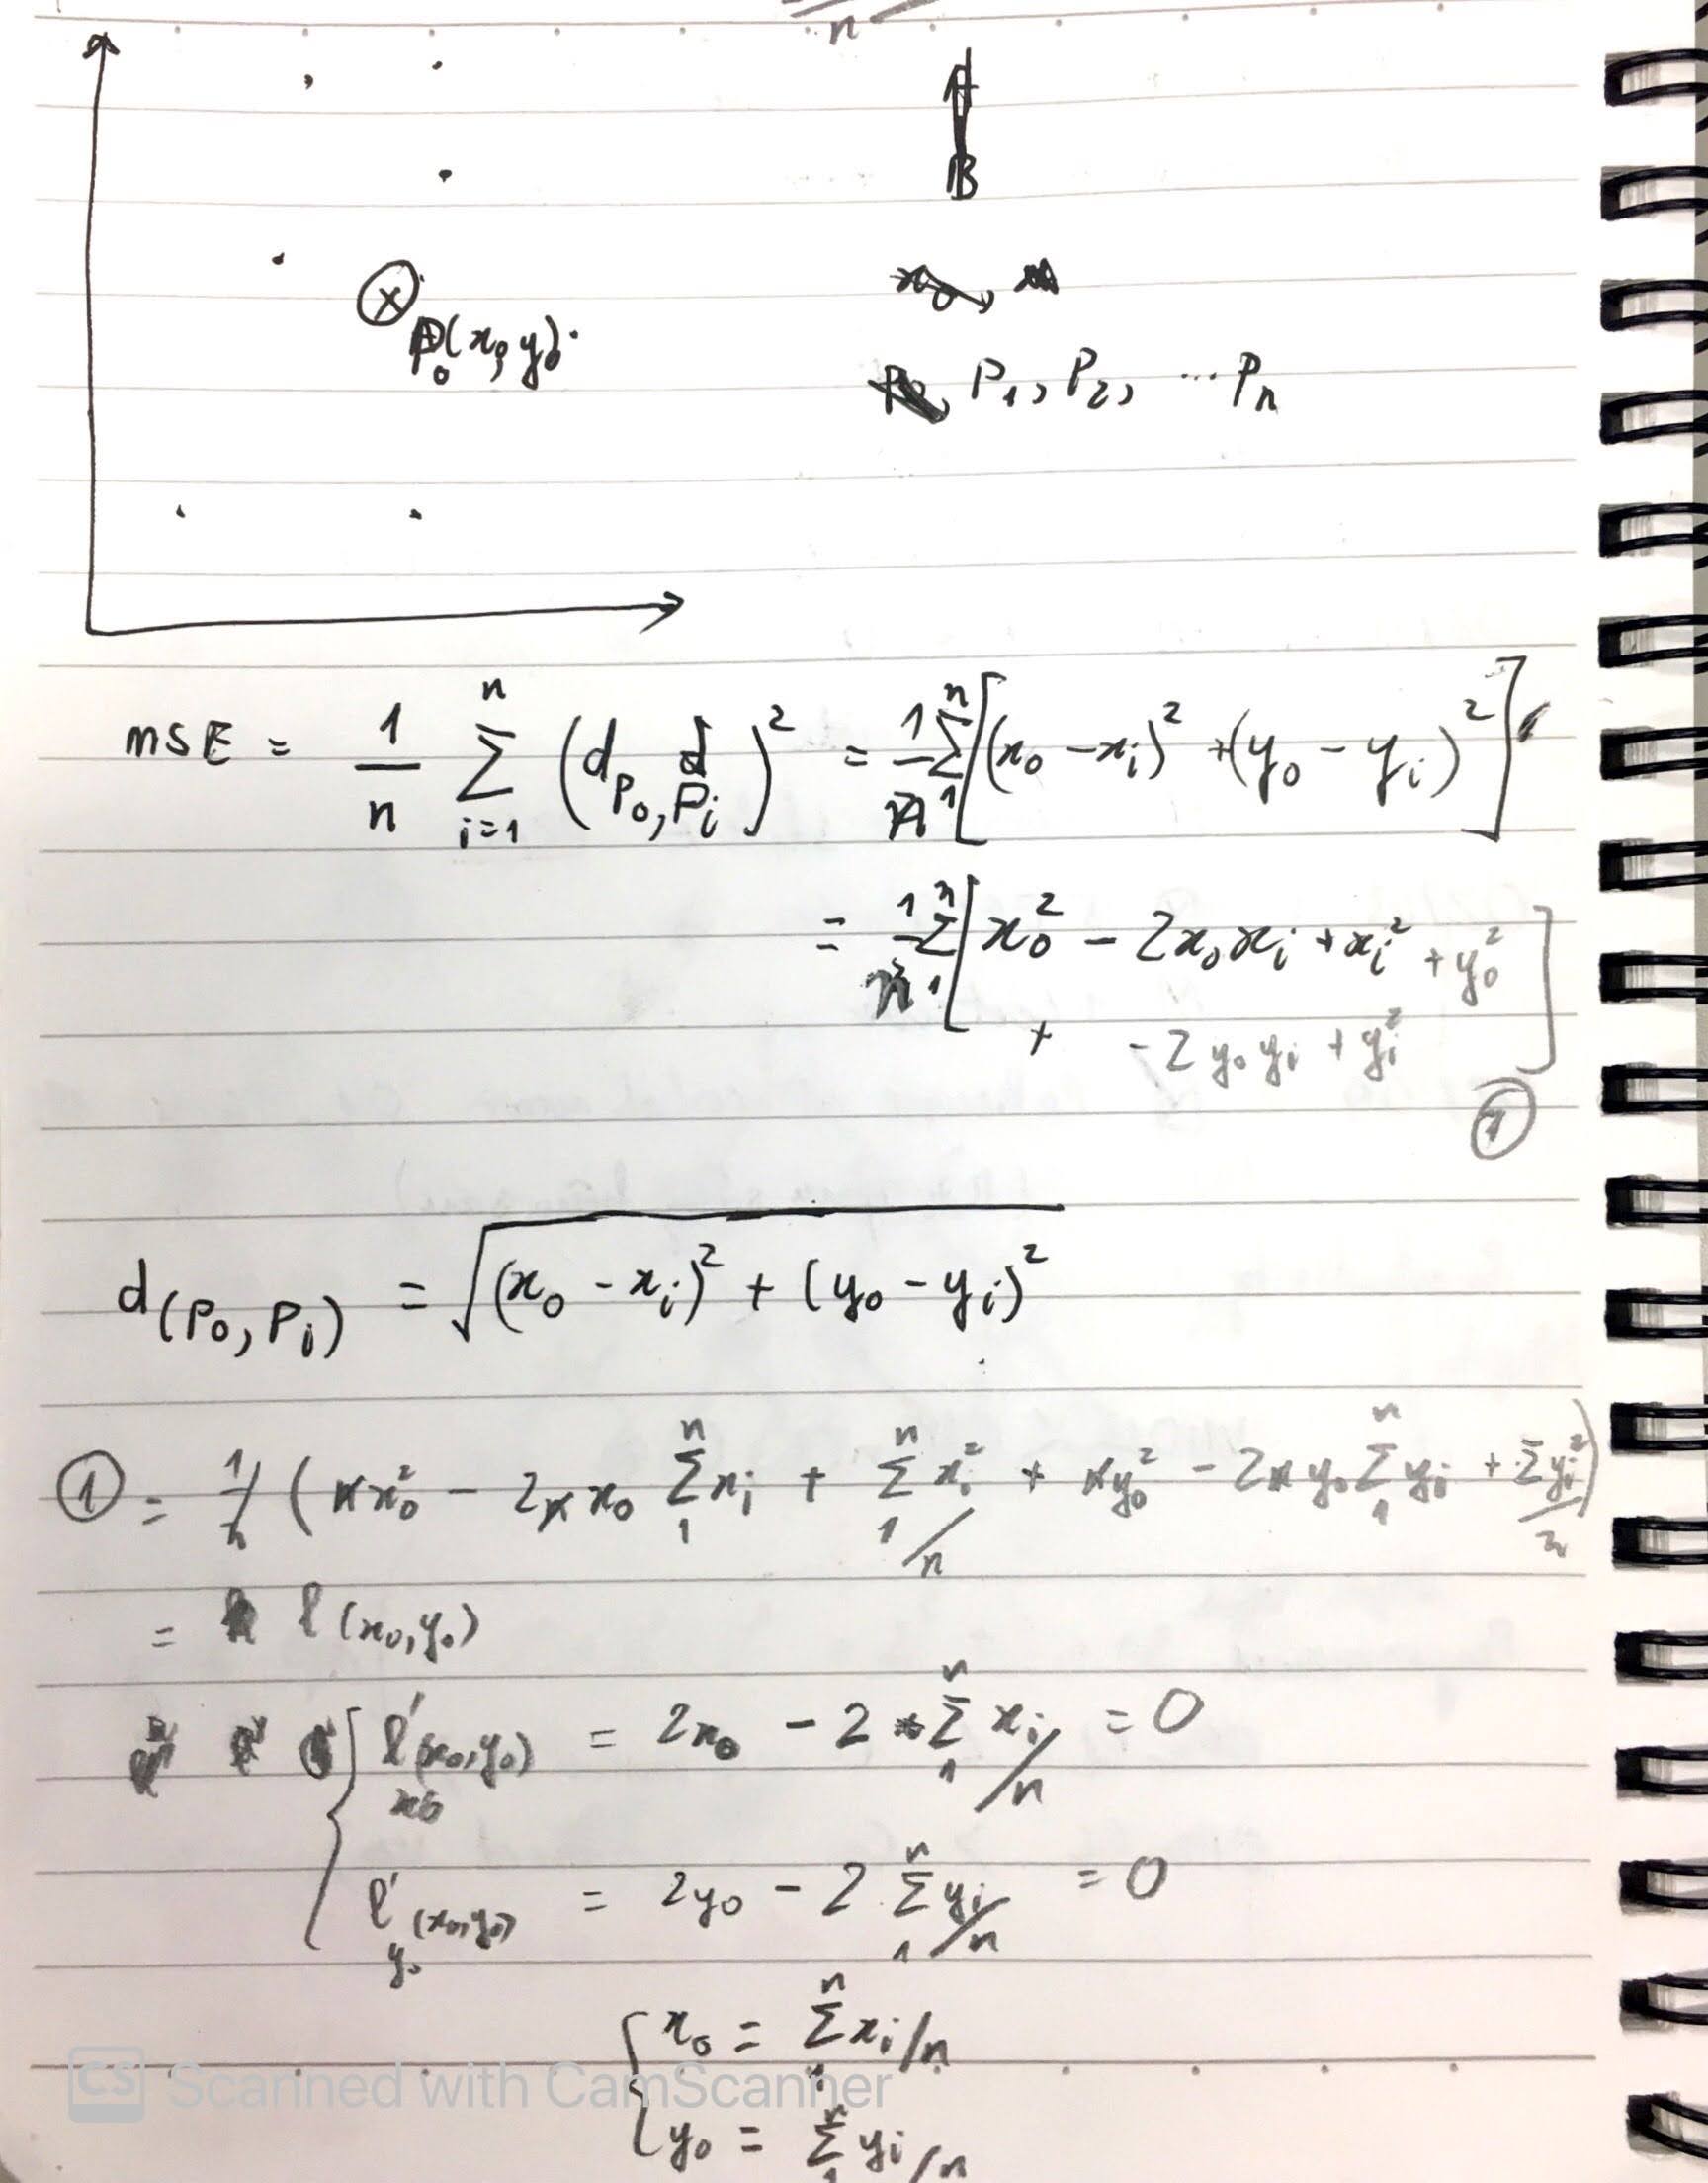 n
A
B
P₀(x₀, y₀)
P₁, P₂, ... Pₙ
MSE = 1/n Σᵢ₌₁ⁿ (d P₀, Pᵢ)² = 1/n Σ₁ⁿ [(x₀ - xᵢ)² + (y₀ - yᵢ)²]
= 1/n Σ₁ⁿ [x₀² - 2x₀xᵢ + xᵢ² + y₀²
+ - 2y₀yᵢ + yᵢ²]
①
d(P₀, Pᵢ) = √((x₀ - xᵢ)² + (y₀ - yᵢ)²)
① = 1/n (n x₀² - 2n x₀ Σ₁ⁿ xᵢ + Σ₁ⁿ xᵢ²/n + n y₀² - 2n y₀ Σ₁ⁿ yᵢ + Σyᵢ²/n)
= l(x₀, y₀)
{ l'x₀(x₀, y₀) = 2x₀ - 2 Σ₁ⁿ xᵢ/n = 0
l'y₀(x₀, y₀) = 2y₀ - 2 Σ₁ⁿ yᵢ/n = 0
{ x₀ = Σ₁ⁿ xᵢ/n
CS Scanned with CamScanner
y₀ = Σ₁ⁿ yᵢ/n